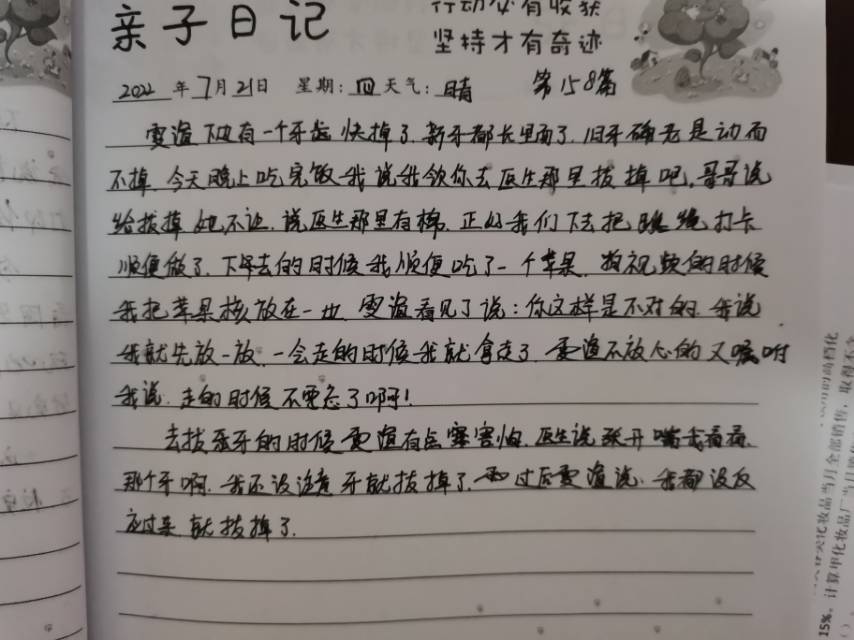 亲子日记
行动必有收获
坚持才有奇迹
2022年7月21日 星期:四 天气:晴 第158篇
雯渲下边有一个牙齿快掉了.新牙都长里面了.旧牙确老是动而
不掉.今天晚上吃完饭我说我领你去医生那里拔掉吧.哥哥说
给拔掉她不让.说医生那里有棉.正好我们下去把跳绳打卡
顺便做了.下午去的时候我顺便吃了一个苹果.拍视频的时候
我把苹果核放在一边.雯渲看见了说:你这样是不对的.我说
我就先放一放.一会走的时候我就拿走了.雯渲不放心的又嘱咐
我说.走的时候不要忘了啊!
去拔牙的时候雯渲有点害怕.医生说张开嘴我看看.
那个牙啊.我还没注意牙就拔掉了.过后雯渲说.我都没反
应过来就拔掉了.
15%,计算甲化妆品厂当月
化妆品当月全部销售,取得不含